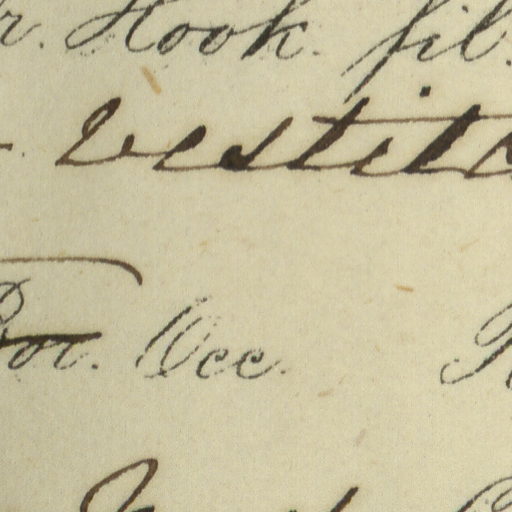 r. Hook. fil.
vestita
Bor. Occ.